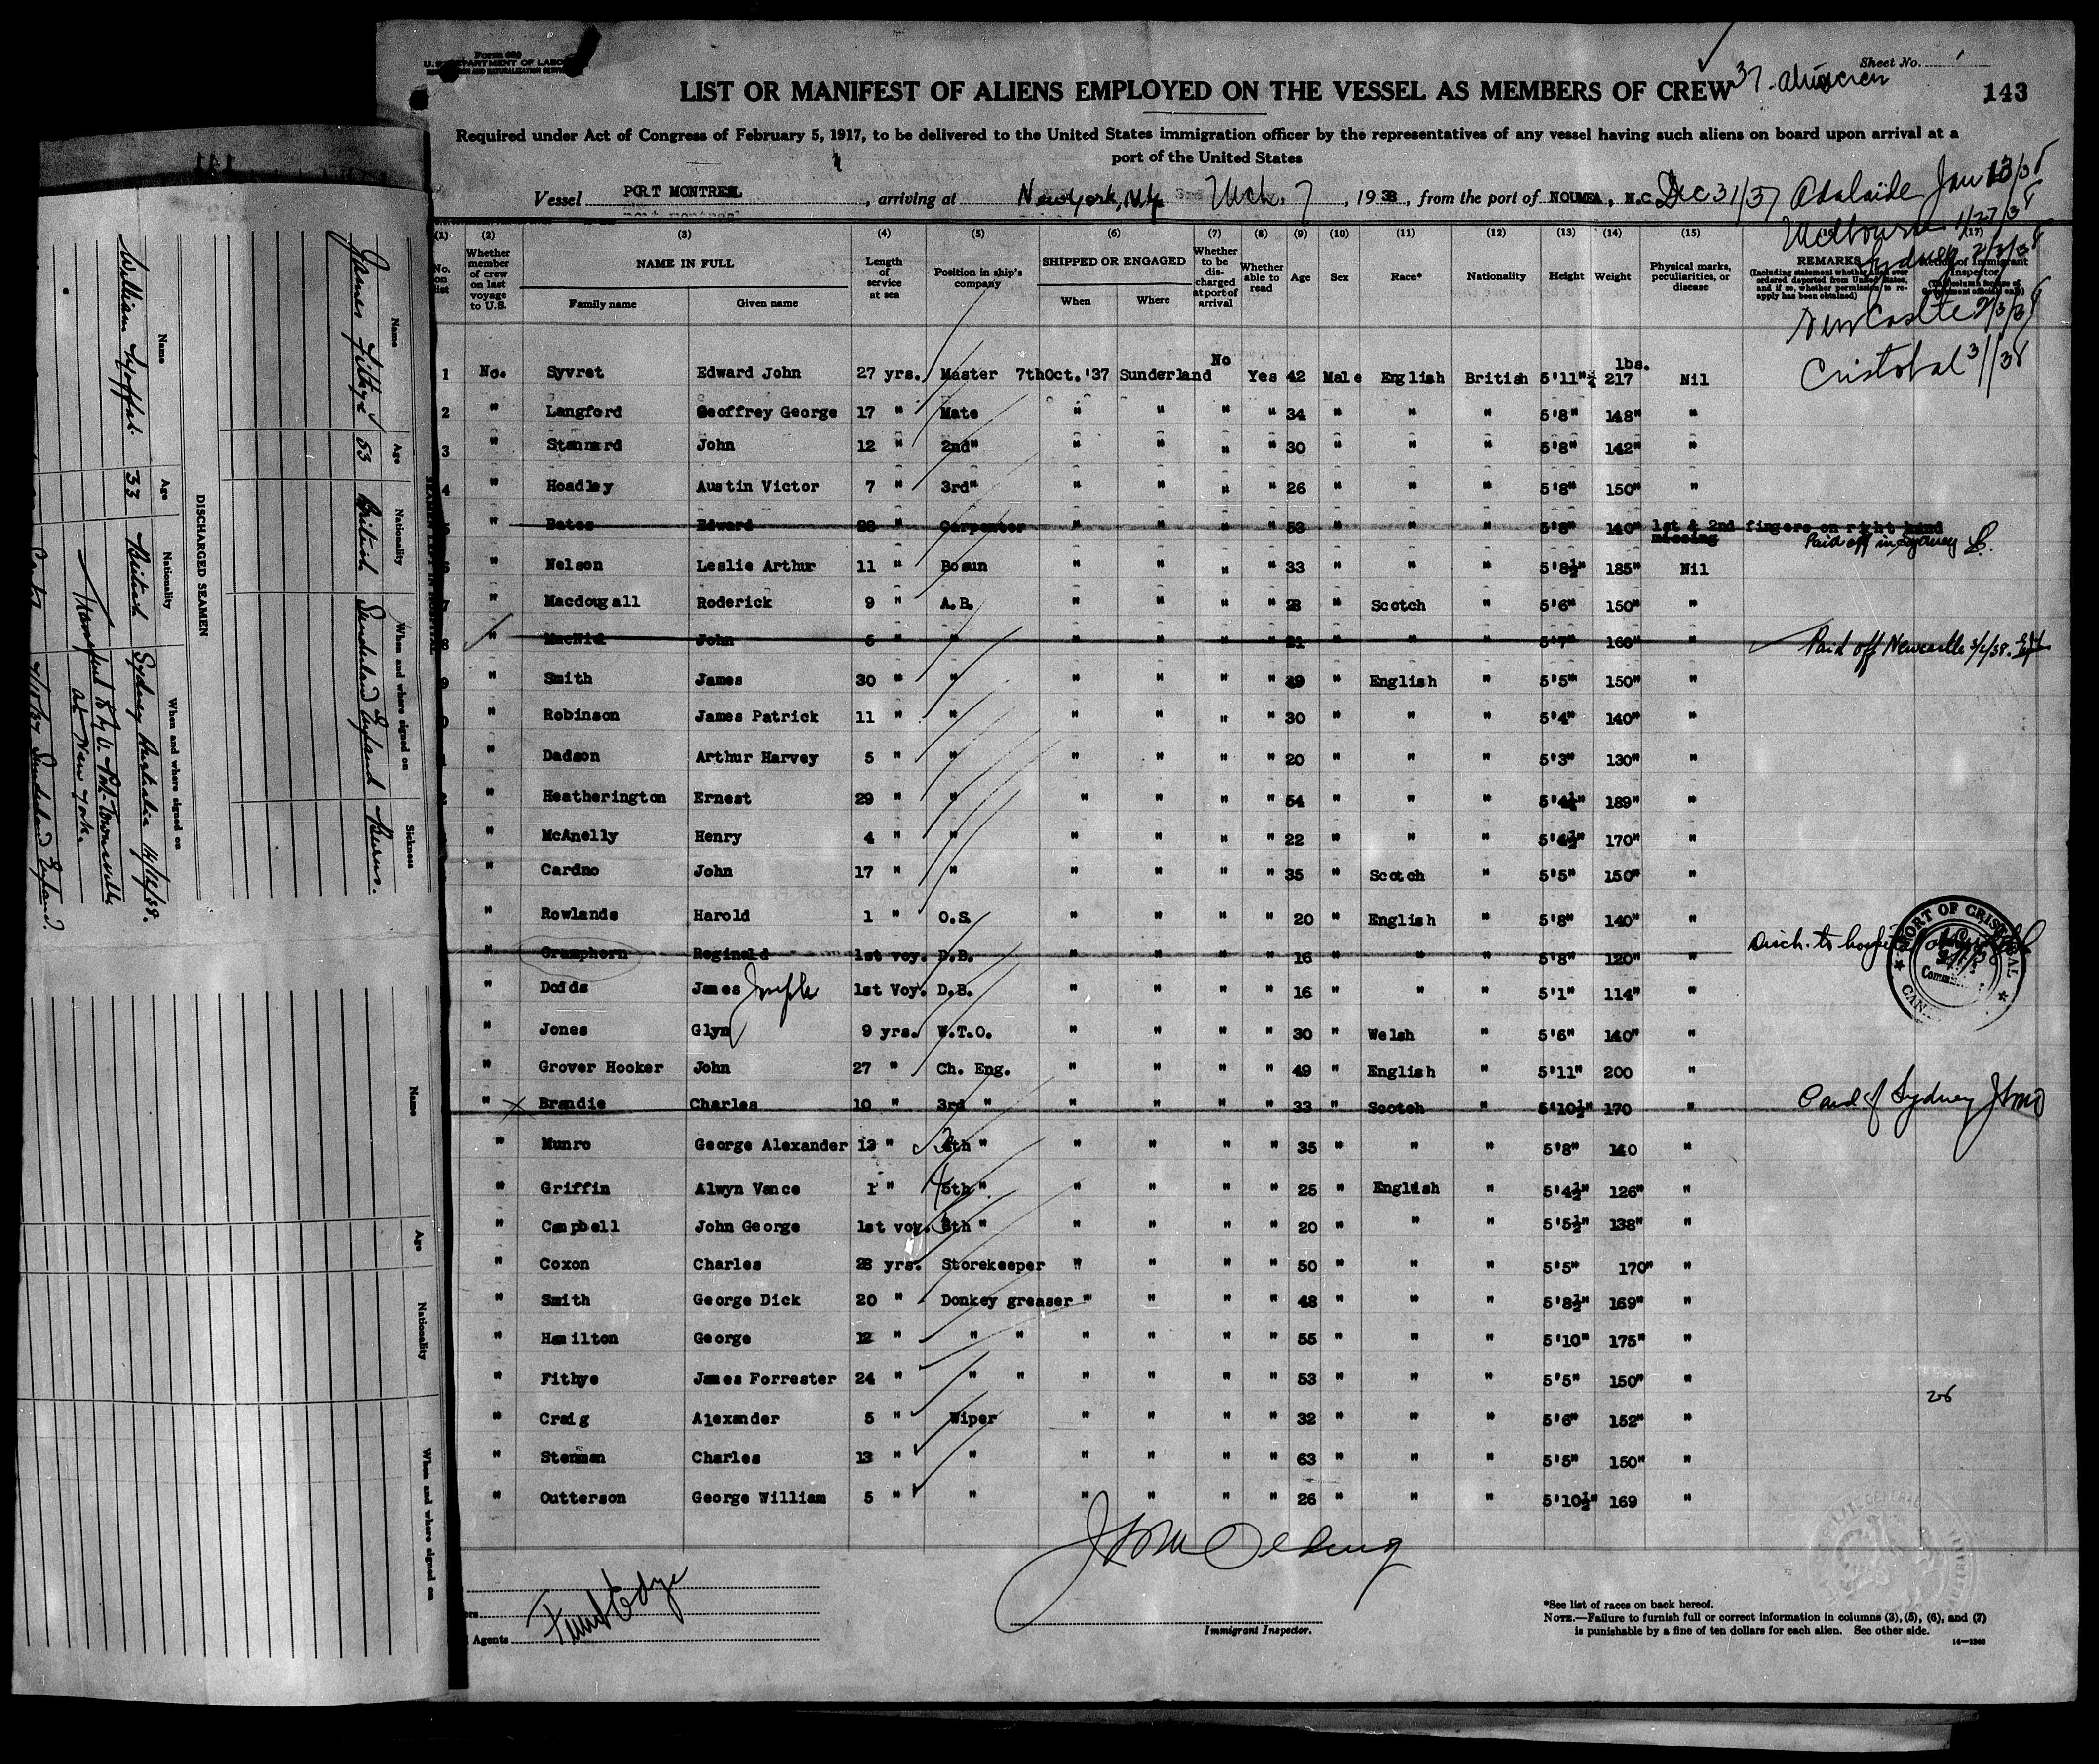 Form 680
U. S. DEPARTMENT OF LABOR
IMMIGRATION AND NATURALIZATION SERVICE
Sheet No.
LIST OR MANIFEST OF ALIENS EMPLOYED ON THE VESSEL AS MEMBERS OF CREW
37
143
Required under Act of Congress of February 5, 1917, to be delivered to the United States immigration officer by the representatives of any vessel having such aliens on board upon arrival at a
port of the United States
Vessel PORT MONTREAL, arriving at New York, N.Y. Mch. 7, 1938, from the port of NOUMEA, N.C. Dec 31/37 Adelaide Jan 13/38
Melbourne 1/27/38
Sydney 2/3/38
Newcastle 2/3/38
Cristobal 3/1/38
(1) (2) (3) (4) (5) (6) (7) (8) (9) (10) (11) (12) (13) (14) (15) (16) (17)
No. on list
Whether member of crew on last voyage to U.S.
NAME IN FULL
Family name Given name
Length of service at sea
Position in ship's company
SHIPPED OR ENGAGED
When Where
Whether to be discharged at port of arrival
Whether able to read
Age Sex Race* Nationality Height Weight
Physical marks, peculiarities, or disease
REMARKS
(Including statement whether alien ever ordered deported from United States, and if so, whether permission to reapply has been obtained)
1 No. Syvret Edward John 27 yrs. Master 7th Oct. '37 Sunderland No Yes 42 Male English British 5'11"½ 217 lbs. Nil
2 " Langford Geoffrey George 17 " Mate " " " " 34 " " " 5'8" 148" "
3 " Stannard John 12 " 2nd" " " " " 30 " " " 5'8" 142" "
4 " Hoadley Austin Victor 7 " 3rd" " " " " 26 " " " 5'8" 150" "
5 " Bates Edward 28 " Carpenter " " " " 53 " " " 5'8" 140" 1st & 2nd fingers on right hand missing Paid off in Sydney
6 " Nelson Leslie Arthur 11 " Bosun " " " " 33 " " " 5'8½" 185" Nil
7 " Macdougall Roderick 9 " A.B. " " " " 28 " Scotch " 5'6" 150" "
8 " MacNid John 5 " " " " " " 21 " " " 5'7" 168" " Paid off Newcastle 3/2/38.
9 " Smith James 30 " " " " " " 39 " English " 5'5" 150" "
0 " Robinson James Patrick 11 " " " " " " 30 " " " 5'4" 140" "
1 " Dadson Arthur Harvey 5 " " " " " " 20 " " " 5'3" 130" "
2 " Heatherington Ernest 29 " " " " " " 54 " " " 5'4½" 189" "
" McAnelly Henry 4 " " " " " " 22 " " " 5'4½" 170" "
" Cardno John 17 " " " " " " 35 " Scotch " 5'5" 150" "
" Rowlands Harold 1 " O.S. " " " " 20 " English " 5'8" 140" "
" Gramphorn Reginald 1st voy. D.B. " " " " 16 " " " 5'8" 120" " Disch. to hospital
" Dodds James 1st Voy. D.B. " " " " 16 " " " 5'1" 114" "
" Jones Glyn 9 yrs. W.T.O. " " " " 30 " Welsh " 5'6" 140" "
" Grover Hooker John 27 " Ch. Eng. " " " " 49 " English " 5'11" 200 "
" Brandie Charles 10 " 3rd " " " " " 33 " Scotch " 5'10½" 170 " Sydney
" Munro George Alexander 13 " 4th " " " " " 35 " " " 5'8" 140 "
" Griffin Alwyn Vance 1 " 5th " " " " " 25 " English " 5'4½" 126" "
" Campbell John George 1st voy. 6th " " " " " 20 " " " 5'5½" 138" "
" Coxon Charles 28 yrs. Storekeeper " " " " 50 " " " 5'5" 170" "
" Smith George Dick 20 " Donkey greaser " " " " 48 " " " 5'8½" 169" "
" Hamilton George 12 " " " " " " " 55 " " " 5'10" 175" "
" Fithye James Forrester 24 " " " " " " " 53 " " " 5'5" 150" "
" Craig Alexander 5 " Wiper " " " " 32 " " " 5'6" 152" "
" Stenman Charles 13 " " " " " " 63 " " " 5'5" 150" "
" Outterson George William 5 " " " " " " 26 " " " 5'10½" 169 "
PORT OF CRISTOBAL
Agents
Immigrant Inspector.
*See list of races on back hereof.
NOTE.—Failure to furnish full or correct information in columns (3), (5), (6), and (7)
is punishable by a fine of ten dollars for each alien. See other side.
14—1240
SEAMEN LEFT IN HOSPITAL
Name Age Nationality When and where signed on Sickness
James Fithye 53 British Sunderland England Burns.
DISCHARGED SEAMEN
Name Age Nationality When and where signed on
William Moffat. 33 British Sydney Australia
at New York.
Sunderland England.
Name Age Nationality When and where signed on